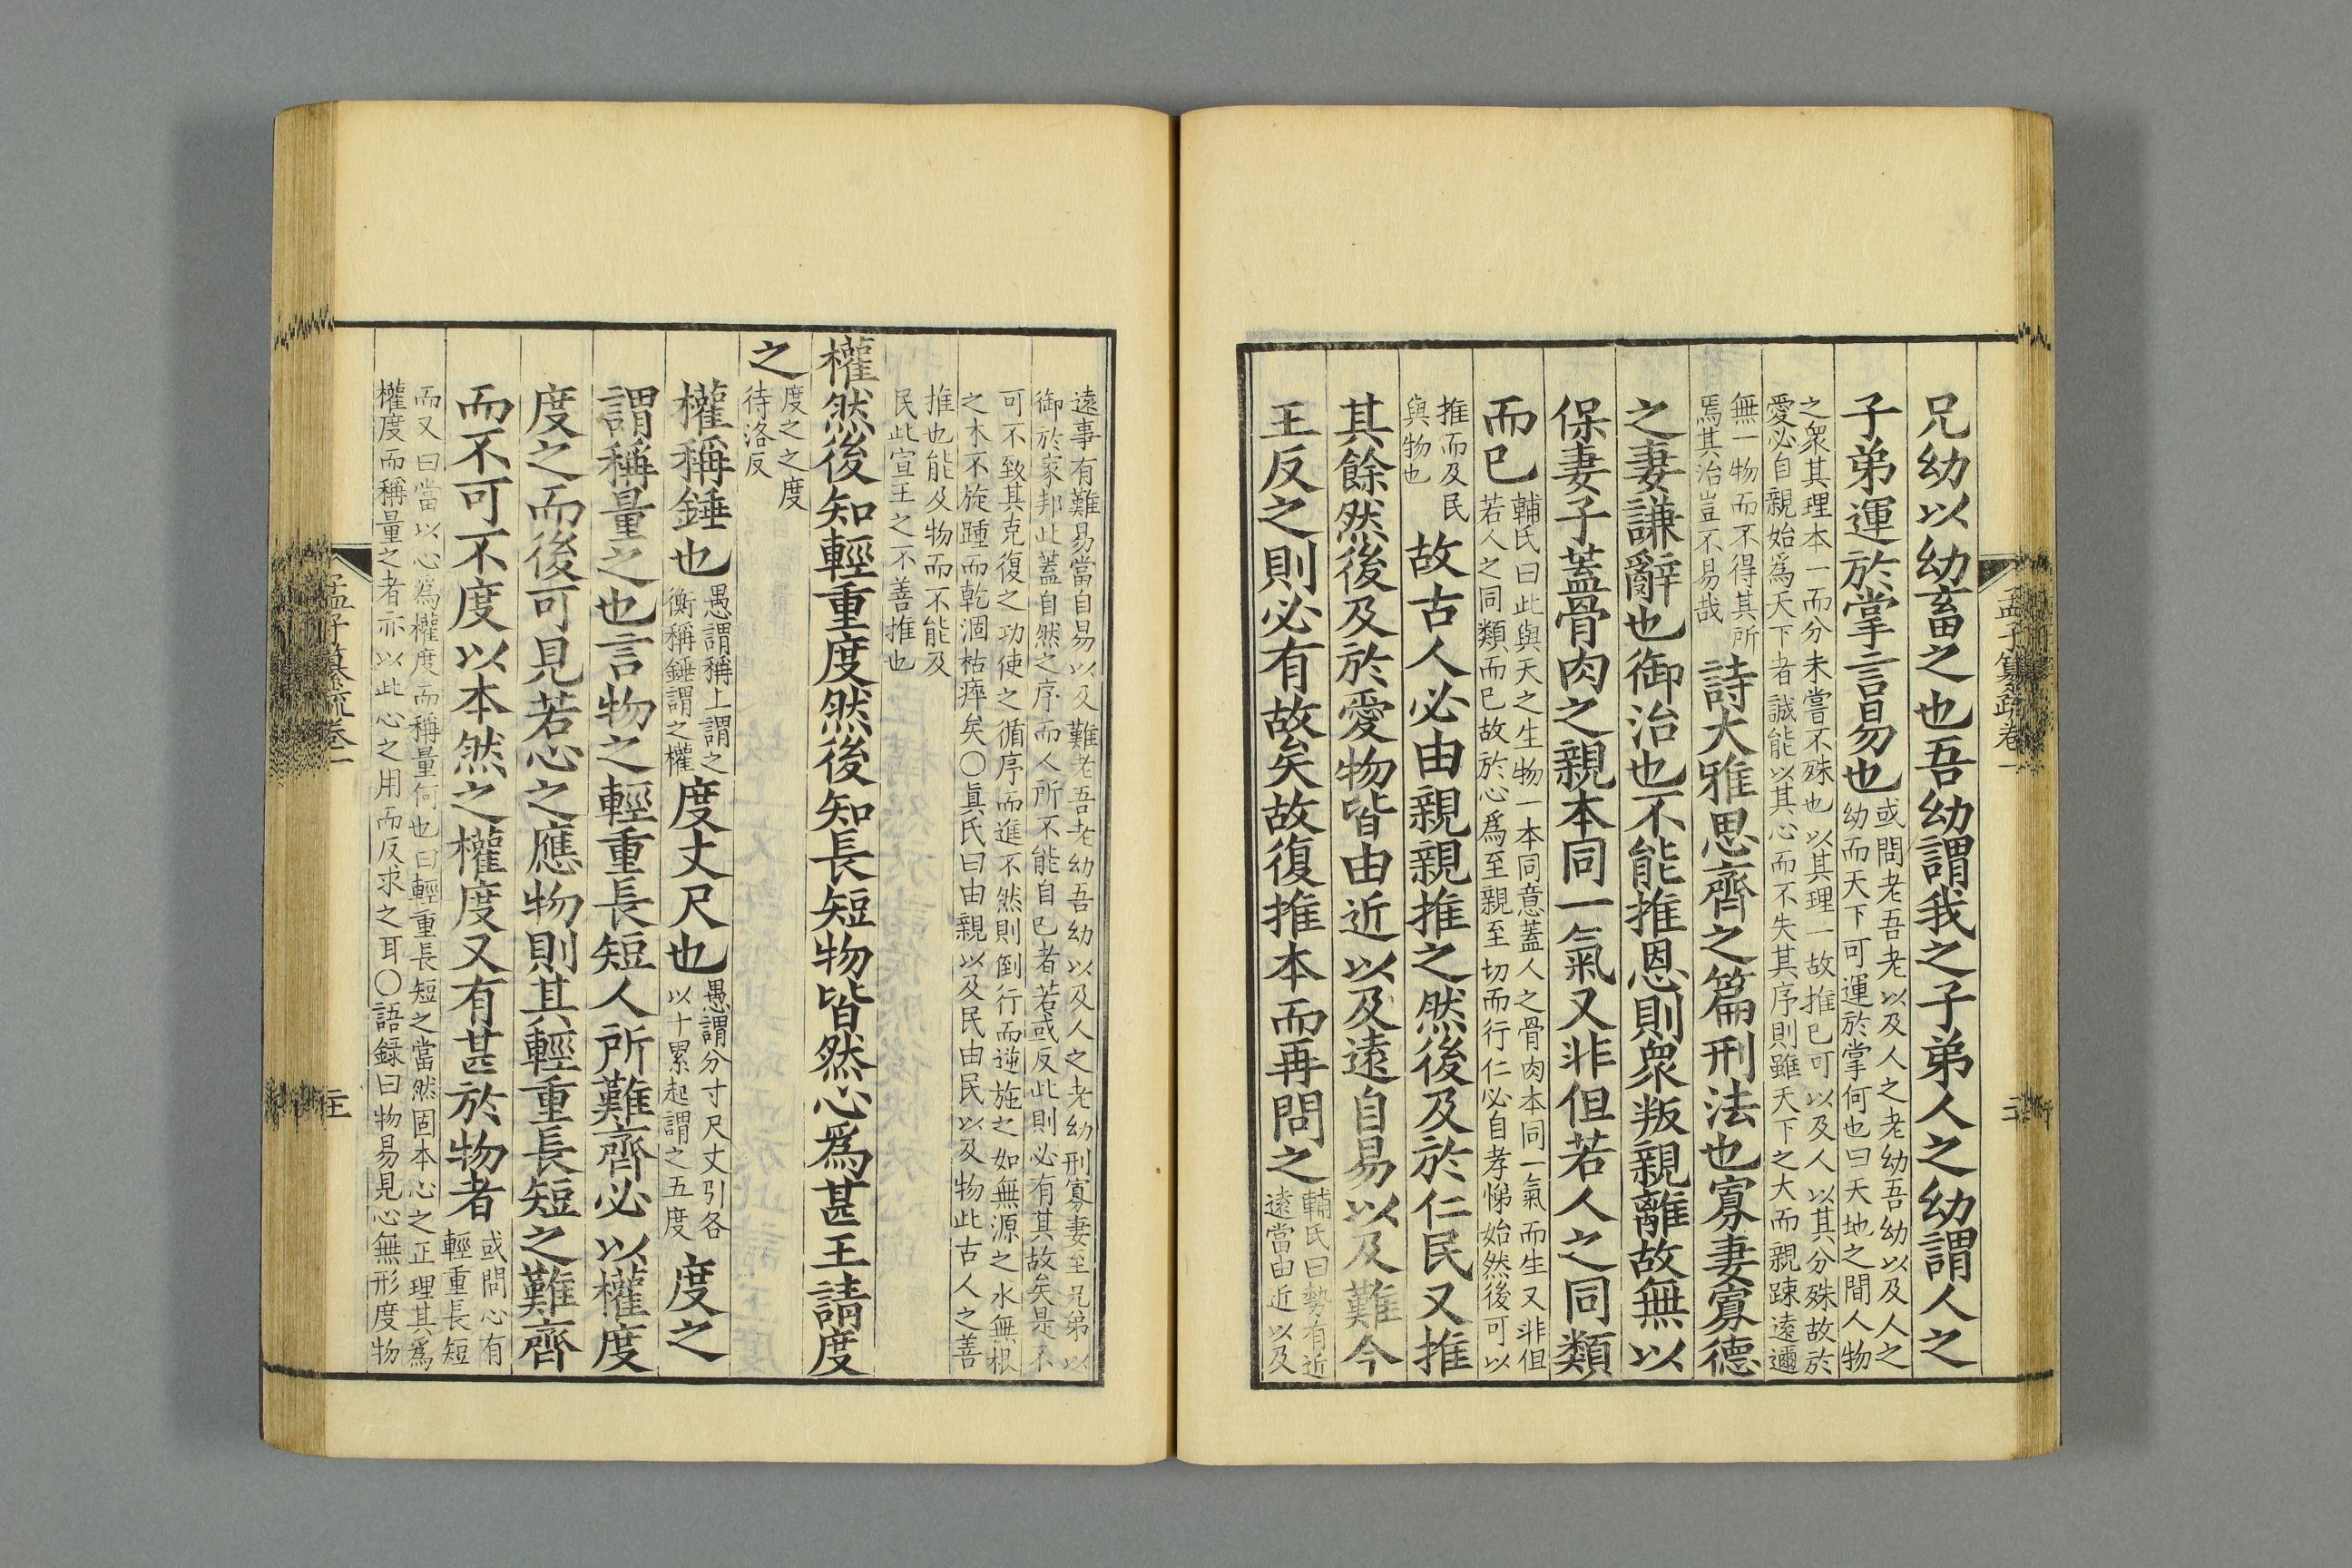 孟子纂疏卷一
兄幼以幼畜之也吾幼謂我之子弟人之幼謂人之
子弟運於掌言易也
或問老吾老以及人之老幼吾幼以及人之
幼而天下可運於掌何也曰天地之間人物
之衆其理本一而分未嘗不殊也以其理一故推已可以及人以其分殊故於
愛必自親始爲天下者誠能以其心而不失其序則雖天下之大而親踈遠邇
無一物而不得其所
焉其治豈不易哉
詩大雅思齊之篇刑法也寡妻寡德
之妻謙辭也御治也不能推恩則衆叛親離故無以
保妻子蓋骨肉之親本同一氣又非但若人之同類
而已
輔氏曰此與天之生物一本同意蓋人之骨肉本同一氣而生又非但
若人之同類而已故於心爲至親至切而行仁必自孝悌始然後可以
推而及民
與物也
故古人必由親親推之然後及於仁民又推
其餘然後及於愛物皆由近以及遠自易以及難今
王反之則必有故矣故復推本而再問之
輔氏曰勢有近
遠當由近以及
遠事有難易當自易以及難老吾老幼吾幼以及人之老幼刑寡妻至兄弟以
御於家邦此蓋自然之序而人所不能自已者若或反此則必有其故矣是不
可不致其克復之功使之循序而進不然則倒行而逆施之如無源之水無根
之木不旋踵而乾涸枯瘁矣〇眞氏曰由親以及民由民以及物此古人之善
推也能及物而不能及
民此宣王之不善推也
權然後知輕重度然後知長短物皆然心爲甚王請度
之
度之之度
待洛反
權稱錘也
愚謂稱上謂之
衡稱錘謂之權
度丈尺也
愚謂分寸尺丈引各
以十累起謂之五度
度之
謂稱量之也言物之輕重長短人所難齊必以權度
度之而後可見若心之應物則其輕重長短之難齊
而不可不度以本然之權度又有甚於物者
或問心有
輕重長短
而又曰當以心爲權度而稱量何也曰輕重長短之當然固本心之正理其爲
權度而稱量之者亦以此心之用而反求之耳〇語録曰物易見心無形度物
孟子纂疏卷一